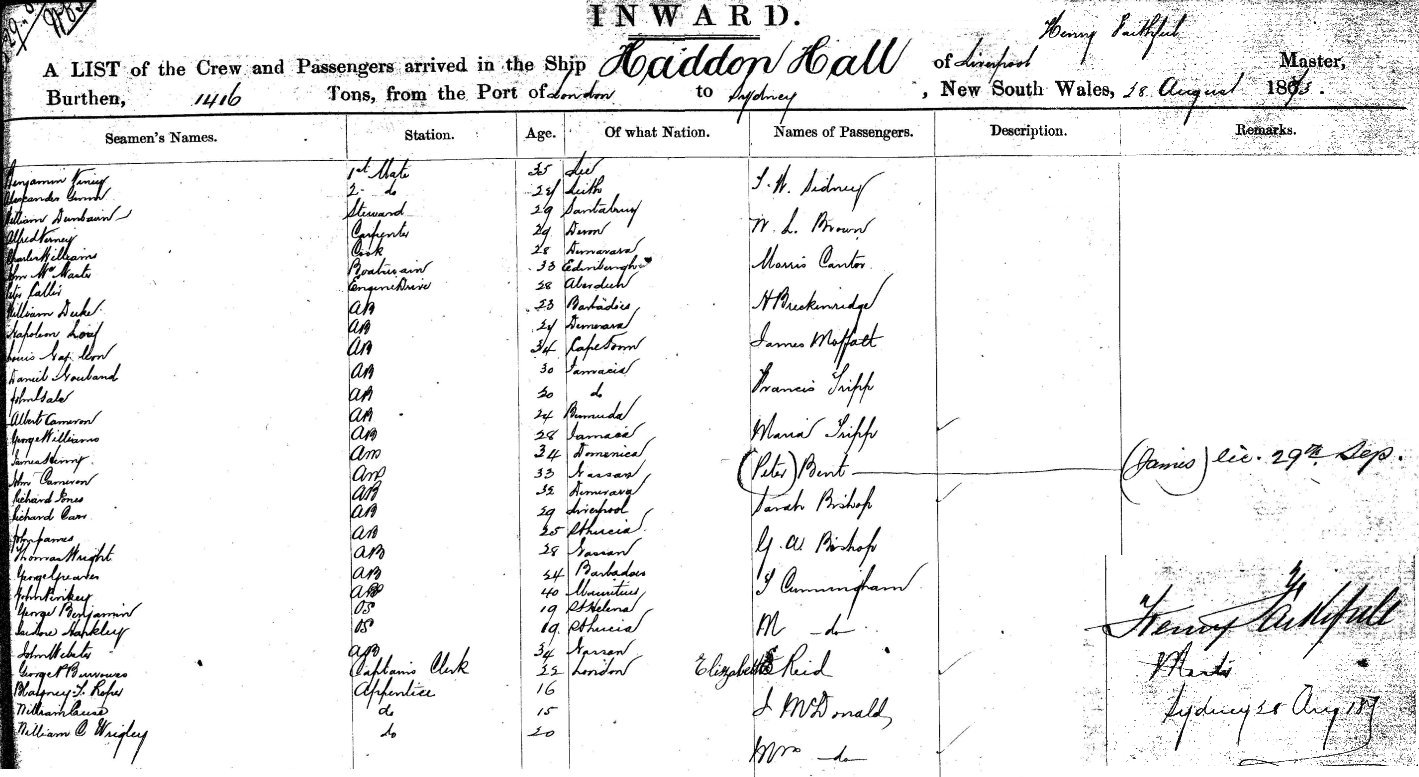 INWARD.
Henry Faithful
A LIST of the Crew and Passengers arrived in the Ship Haddon Hall of Liverpool Master,
Burthen, 1416 Tons, from the Port of London to Sydney, New South Wales, 28 August 1873.
Seamen's Names. Station. Age. Of what Nation. Names of Passengers. Description. Remarks.
Benjamin 1st Mate 35
Alexander Gunn 2 do Leith T. W. Sidney
William Dunbain Steward 29
Alfred Verney Carpenter 29 Devon W. L. Brown
Charles Williams Cook 28 Demarara
John McMaster Boatswain 33 Edinburgh Morris Cantor
Peter Engine Drive 28 Aberdeen
William Duke AB 23 Barbadoes H Breckenridge
Napoleon AB Demerara
Louis AB 34 Cape Town James Moffatt
Daniel AB 30 Jamacia
John AB 20 do Francis Tripp
Albert Cameron AB 24 Bermuda
George Williams AB 28 Jamacia Maria Tripp
James 34 Domenica
John Cameron 33 Nassau (Peter) Bent (James) lic. 29th Sep.
Richard Jones AB 32 Demerara
Richard Carr AB 29 Liverpool Sarah Bishop
John James AB 25 St Lucia
Thomas Wright AB 28 Nassau G. A Bishop
George Greaves AB 24 Barbadoes
John Pinkey AB 40 Mauritius J Cunningham
George Benjamin OS 19 St Helena
Hankley OS 19 St Lucia M do
John Webster AB 34 Nassau
George P Burrows Captains Clerk 22 London Elizabeth Reid
Blayney T. Roper Apprentice 16
William 15 J McDonald
William C Wrigley do 20
Mrs do
Henry Faithfull
Master
Sydney 28 Aug 187